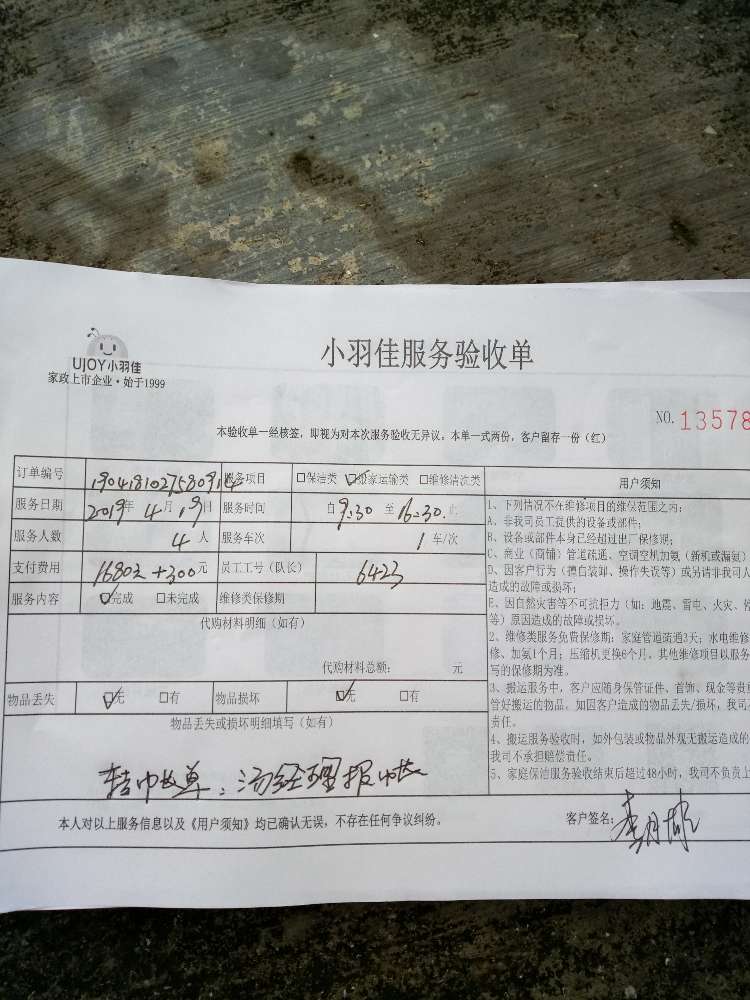 UJOY小羽佳
家政上市企业·始于1999
小羽佳服务验收单
NO. 13578
本验收单一经核签，即视为对本次服务验收无异议。本单一式两份，客户留存一份（红）
订单编号 1904181027580914 服务项目 □保洁类 ☑搬家运输类 □维修清次类
服务日期 2019年 4月 19日 服务时间 自 9:30 至 16:30 止
服务人数 4 人 服务车次 1 车/次
支付费用 1680元+300元 员工工号（队长） 6423
服务内容 ☑完成 □未完成 维修类保修期
代购材料明细（如有）
代购材料总额： 元
物品丢失 ☑无 □有 物品损坏 ☑无 □有
物品丢失或损坏明细填写（如有）
转帐单：汤经理报帐
本人对以上服务信息以及《用户须知》均已确认无误，不存在任何争议纠纷。
客户签名：
用户须知
1、下列情况不在维修项目的维保范围之内：
A、非我司员工提供的设备或部件；
B、设备或部件本身已经超过出厂保修期；
C、商业（商铺）管道疏通、空调空机加氨（新机或漏氨）
D、因客户行为（擅自装卸、操作失误等）或另请非我司人
造成的故障或损坏；
E、因自然灾害等不可抗拒力（如：地震、雷电、火灾、
等）原因造成的故障或损坏。
2、维修类服务免费保修期：家庭管道疏通3天；水电维
修、加氨1个月；压缩机更换6个月。其他维修项目以服务
写的保修期为准。
3、搬运服务中，客户应随身保管证件、首饰、现金等贵
管好搬运的物品。如因客户造成的物品丢失/损坏，我司
责任。
4、搬运服务验收时，如外包装或物品外观无搬运造成的
我司不承担赔偿责任。
5、家庭保洁服务验收结束后超过48小时，我司不负责